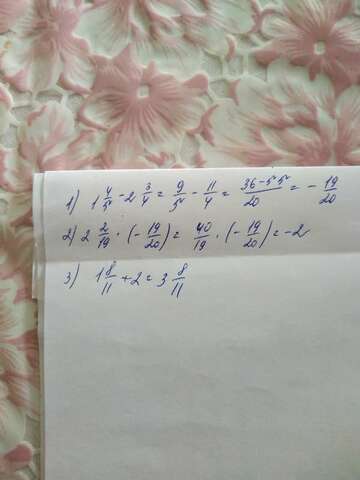 1) 1 4/5 - 2 3/4 = 9/5 - 11/4 = 36-55/20 = - 19/20
2) 2 2/19 · (- 19/20) = 40/19 · (- 19/20) = -2
3) 1 8/11 + 2 = 3 8/11